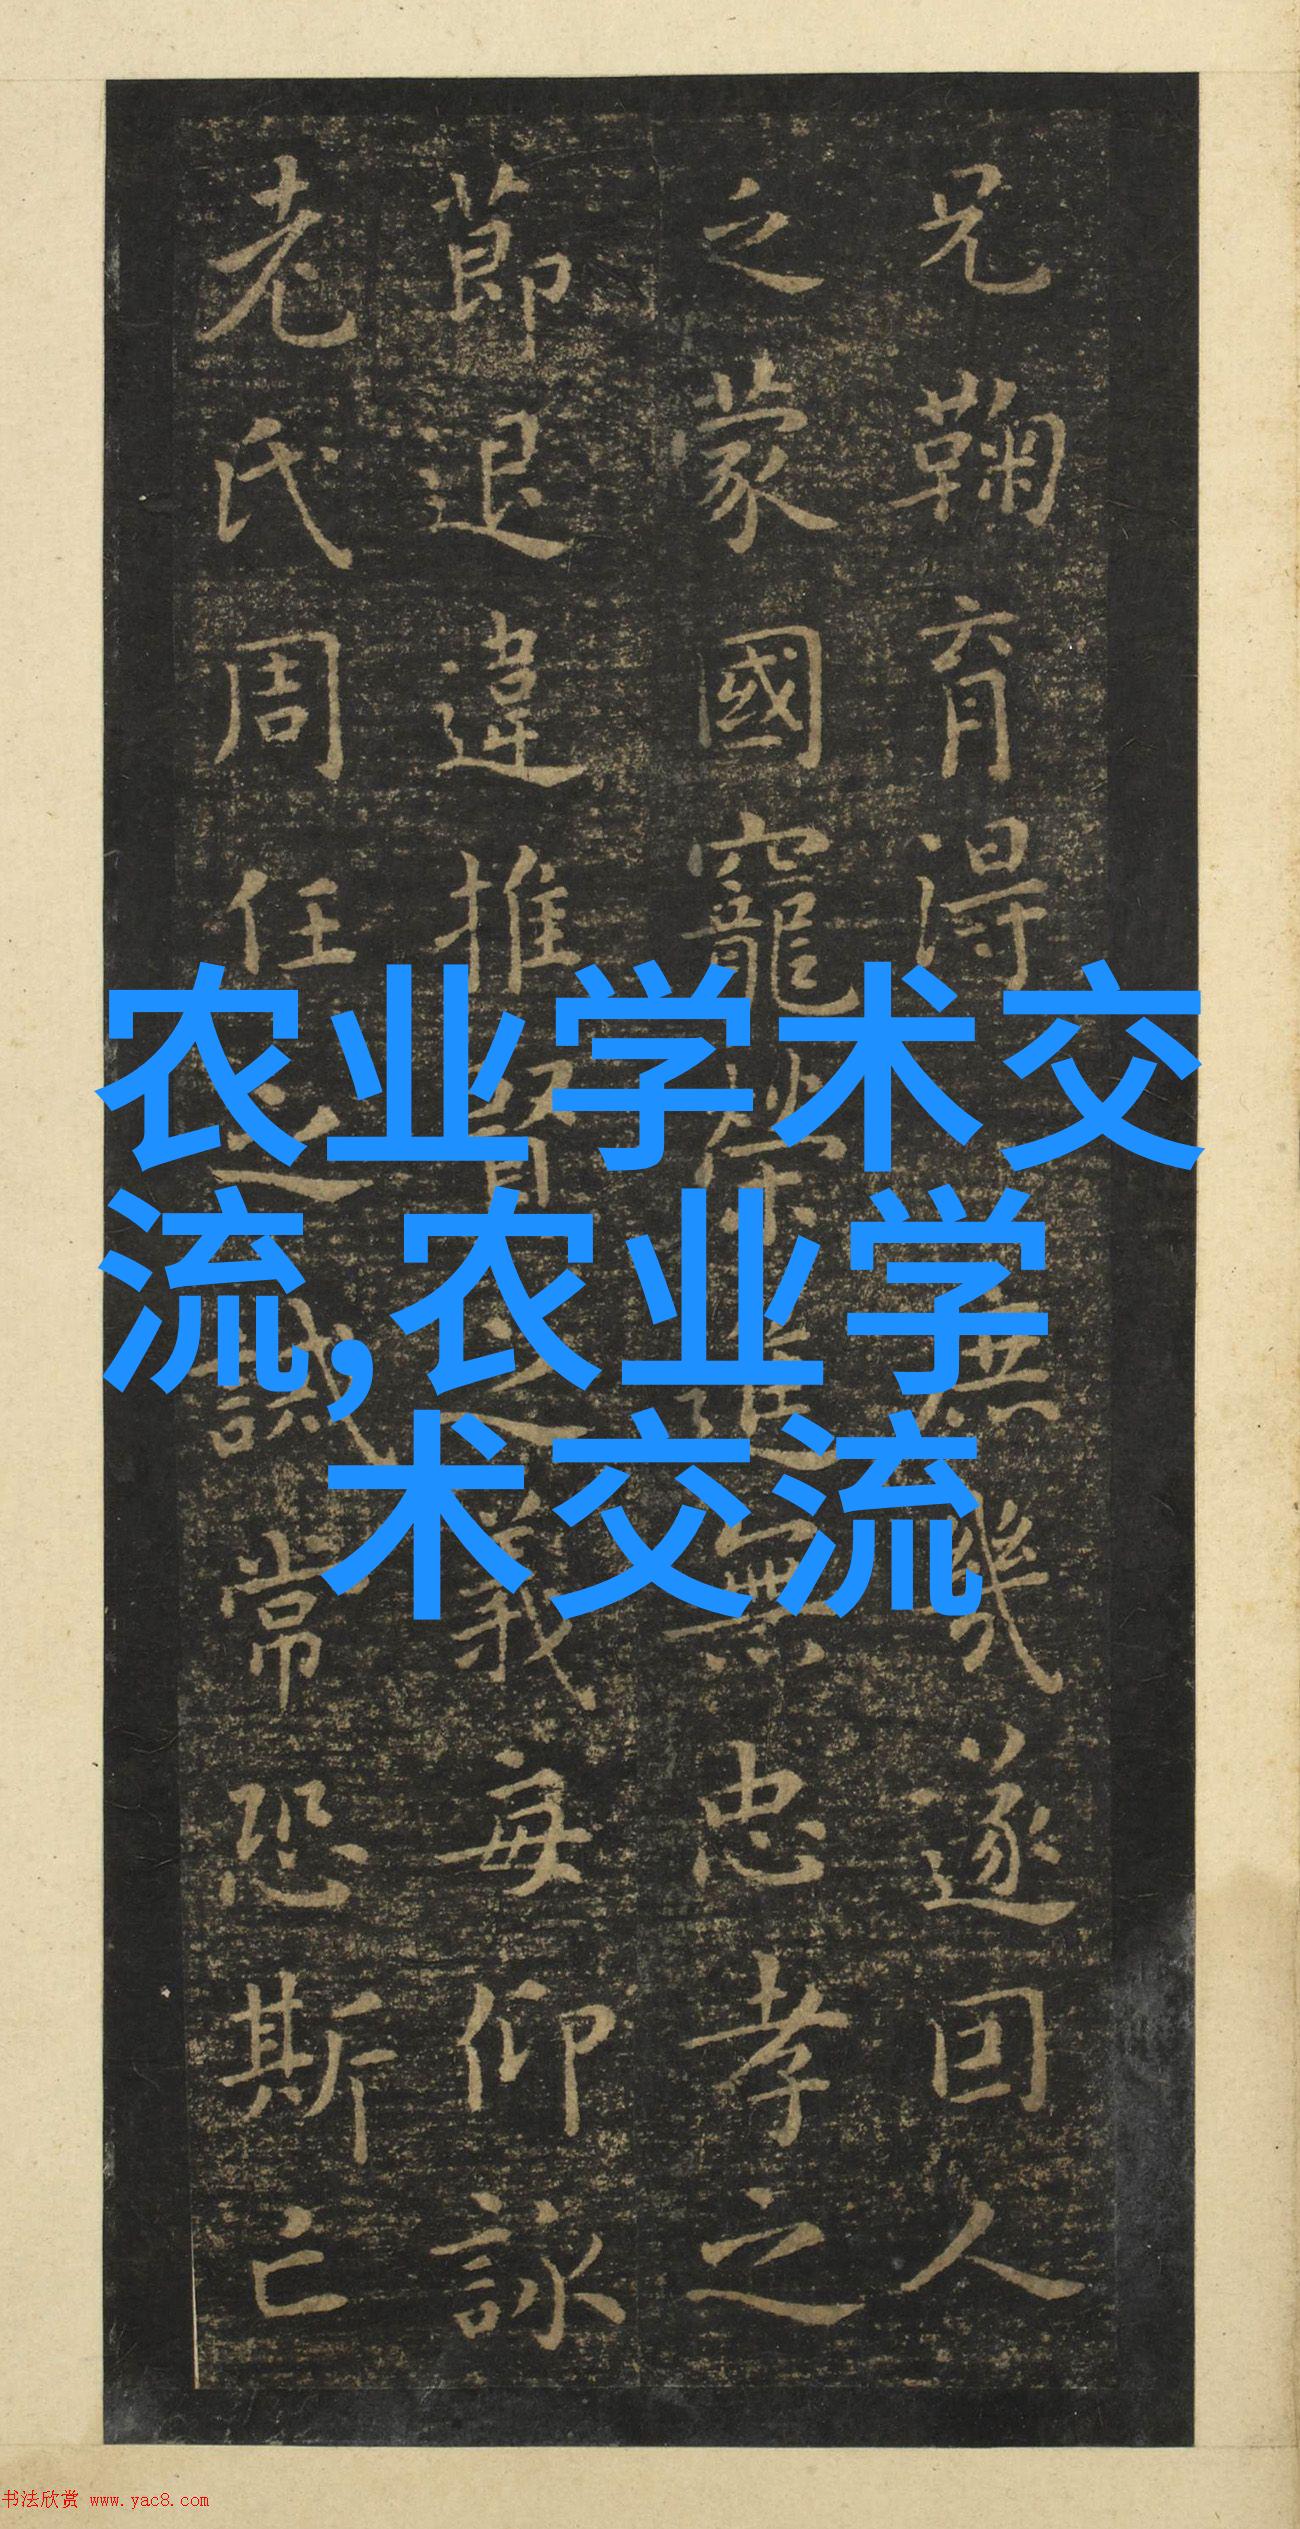 兄鞠育得庶幾遂因人
之蒙國寵榮進無忠孝之
節退違推賢之義每仰詠
老氏周任之誡常恐斯亡
农业学术交
流,农业学
术交流
书法欣赏 www.yac8.com